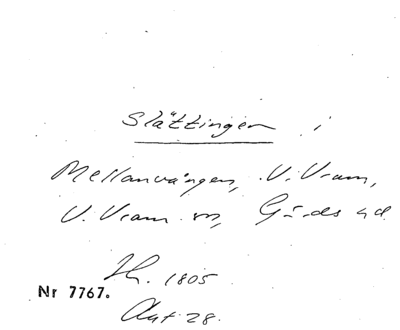 Slättingen i
Mellanvången, V. Vram,
V. Vram sn, Gärds hd.
Th. 1805
Nr 7767.
Akt 28.